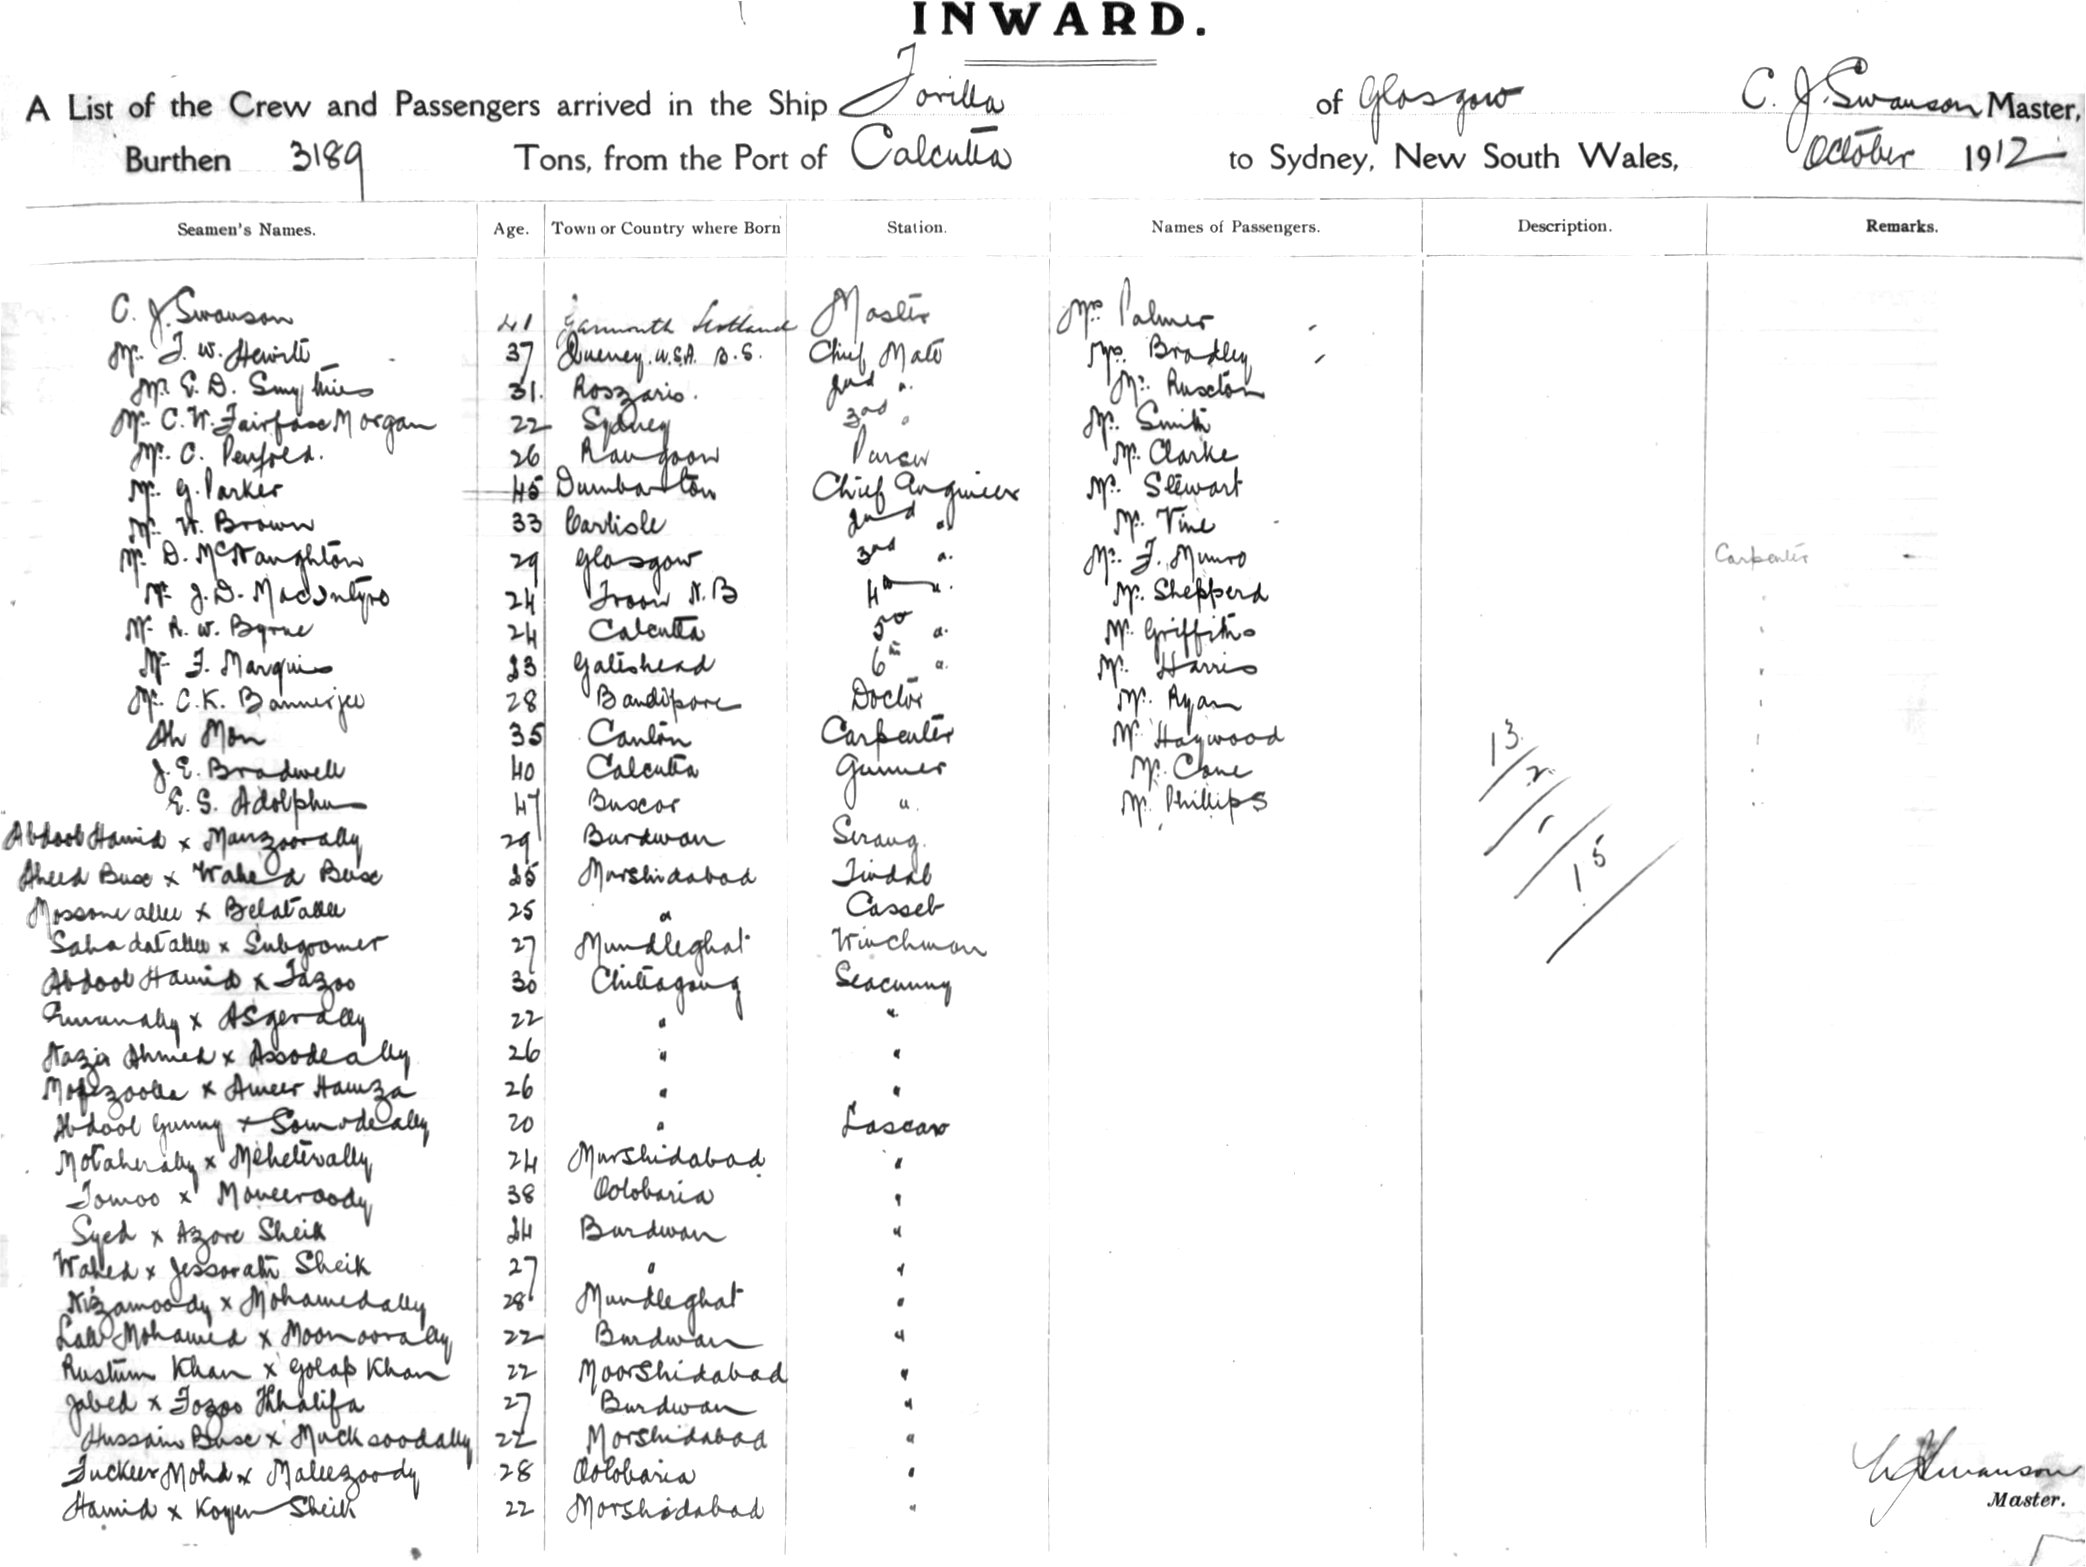 INWARD.
A List of the Crew and Passengers arrived in the Ship Torilla of Glasgow C. J. Swanson Master,
Burthen 3189 Tons, from the Port of Calcutta to Sydney, New South Wales, October 1912
Seamen's Names. Age. Town or Country where Born Station. Names of Passengers. Description. Remarks.
C. J. Swanson 41 Garmouth Scotland Master Mrs Palmer
Mr. F. W. Hewitt 37 U.S.A. B.S. Chief Mate Mrs. Bradley
Mr. E. D. Smythies 31. Rozario. 2nd ". Mr. Ruxton
Mr. C. W. Fairfax Morgan 22 Sydney 3rd " Mr. Smith
Mr. C. Penfold. 26 Rangoon Purser Mr. Clarke
Mr. G. Parker 45 Dumbarton Chief Engineer Mr. Stewart
Mr. W. Brown 33 Carlisle 2nd " Mr. Vine
Mr. D. McNaughton 29 Glasgow 3rd ". Mr. F. Munro Carpenter
Mr. J. D. MacIntyre 24 Troon N.B 4th ". Mr. Shepperd
Mr. A. W. Byrne 24 Calcutta 5th ". Mr. Griffiths
Mr. F. Marquis 23 Gateshead 6th ". Mr. Harris
Mr. C. K. Bannerjee 28 Bandipore Doctor Mr. Ryan
Ah Mon 35 Canton Carpenter Mr Haywood
J. E. Bradwell 40 Calcutta Gunner Mr. Cane
E. S. Adolphus 47 Buscor ". Mr. Phillips
13/2
1
15
Abdool Hamid x Manzoorally 29 Burdwan Serang.
Aheed Bux x Wahed Bux 25 Murshidabad Tindal
Mossomeallee x Belatallee 25 " Casseb
Sahadatallee x Subgoomer 27 Mundleghat Winchman
Abdool Hamid x Fazoo 30 Chittagong Seacunny
x Asgerally 22 " "
Nazir Ahmed x Assodeally 26 " "
Mofezoolla x Ameer Hamza 26 " "
Abdool Gunny x Somodeally 20 " Lascar
Motaherally x Mehetevally 24 Murshidabad "
Tomoo x Moneeroody 38 Oolobaria "
Syed x Azore Sheik 24 Burdwan "
Wahed x Jessorath Sheik 27 " "
Nizamoody x Mohamedally 28 Mundleghat "
Lall Mohamed x Moonoorally 22 Burdwan "
Rustum Khan x Golap Khan 22 Moorshidabad "
Jabed x Fozoo Khalifa 27 Burdwan "
Hussain Bux x Mucksoodally 22 Morshidabad "
Fuckeer Mohd x Maleezoody 28 Oolobaria "
Hamid x Koyen Sheik 22 Morshidabad "
C J Swanson
Master.